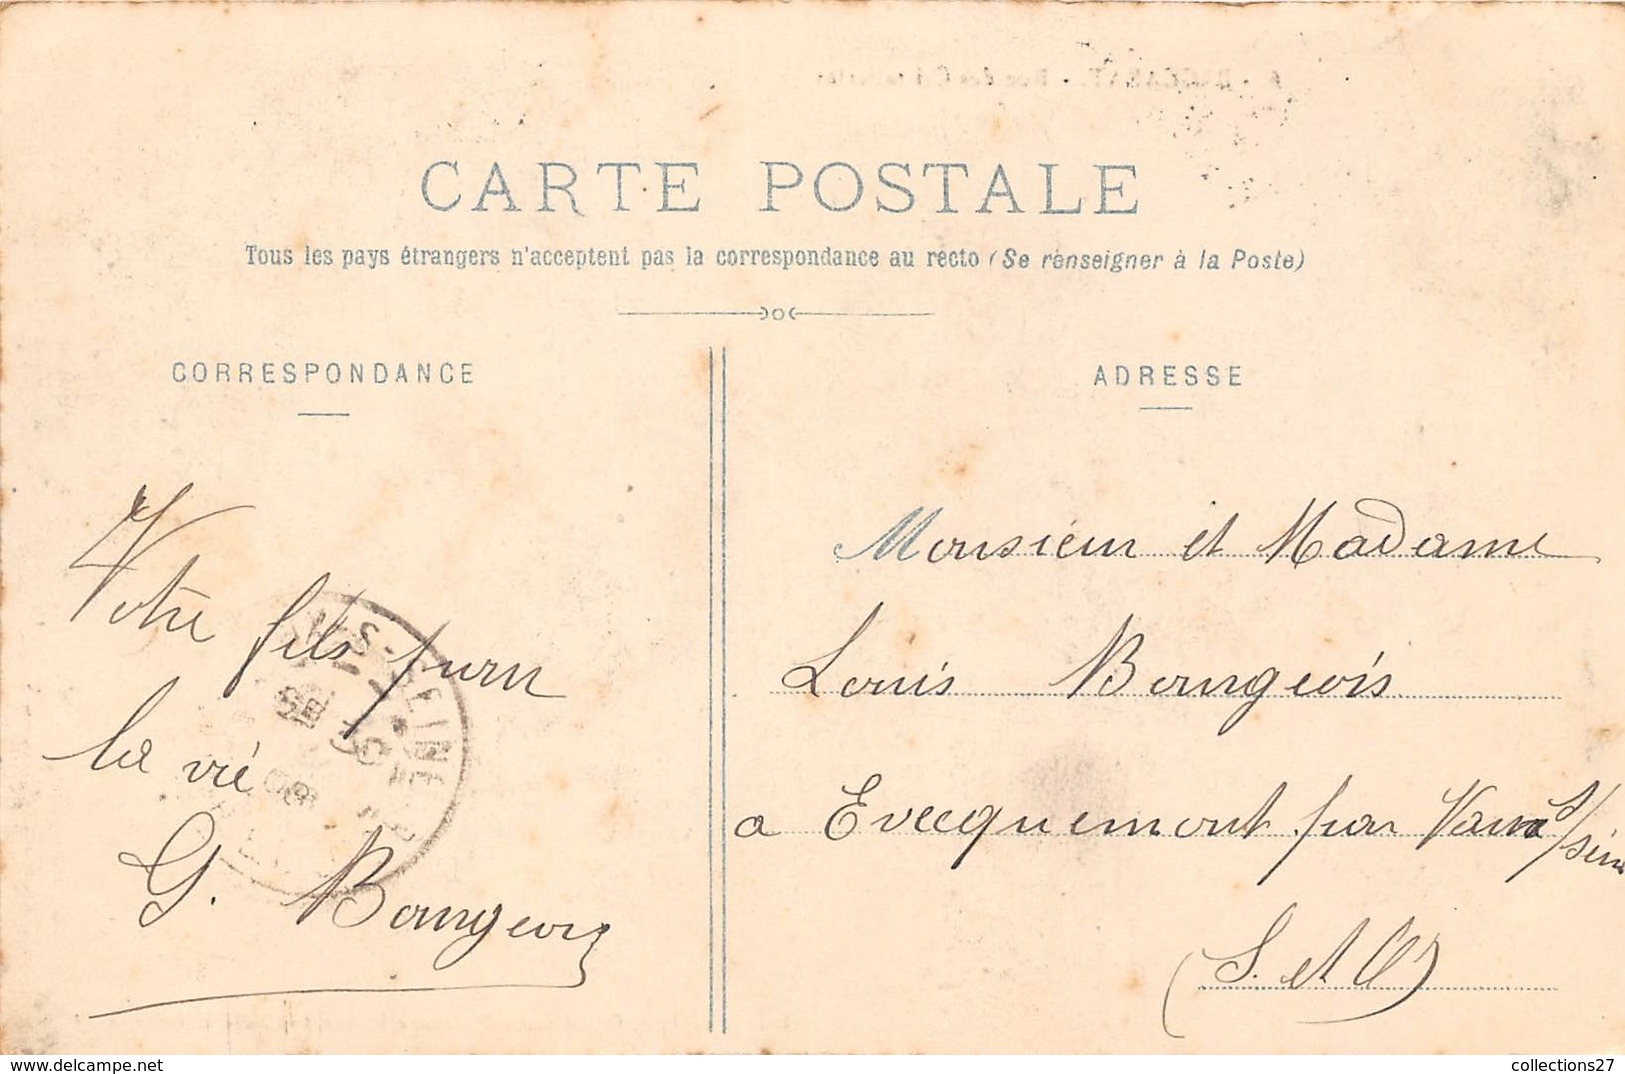 CARTE POSTALE
Tous les pays étrangers n'acceptent pas la correspondance au recto (Se renseigner à la Poste)
CORRESPONDANCE
Votre fils pour
la vie
G. Bourgeois
ADRESSE
Monsieur et Madame
Louis Bourgeois
a Evecquemont par Vaux S/Seine
(S. et O)
S-SEINE
collections27